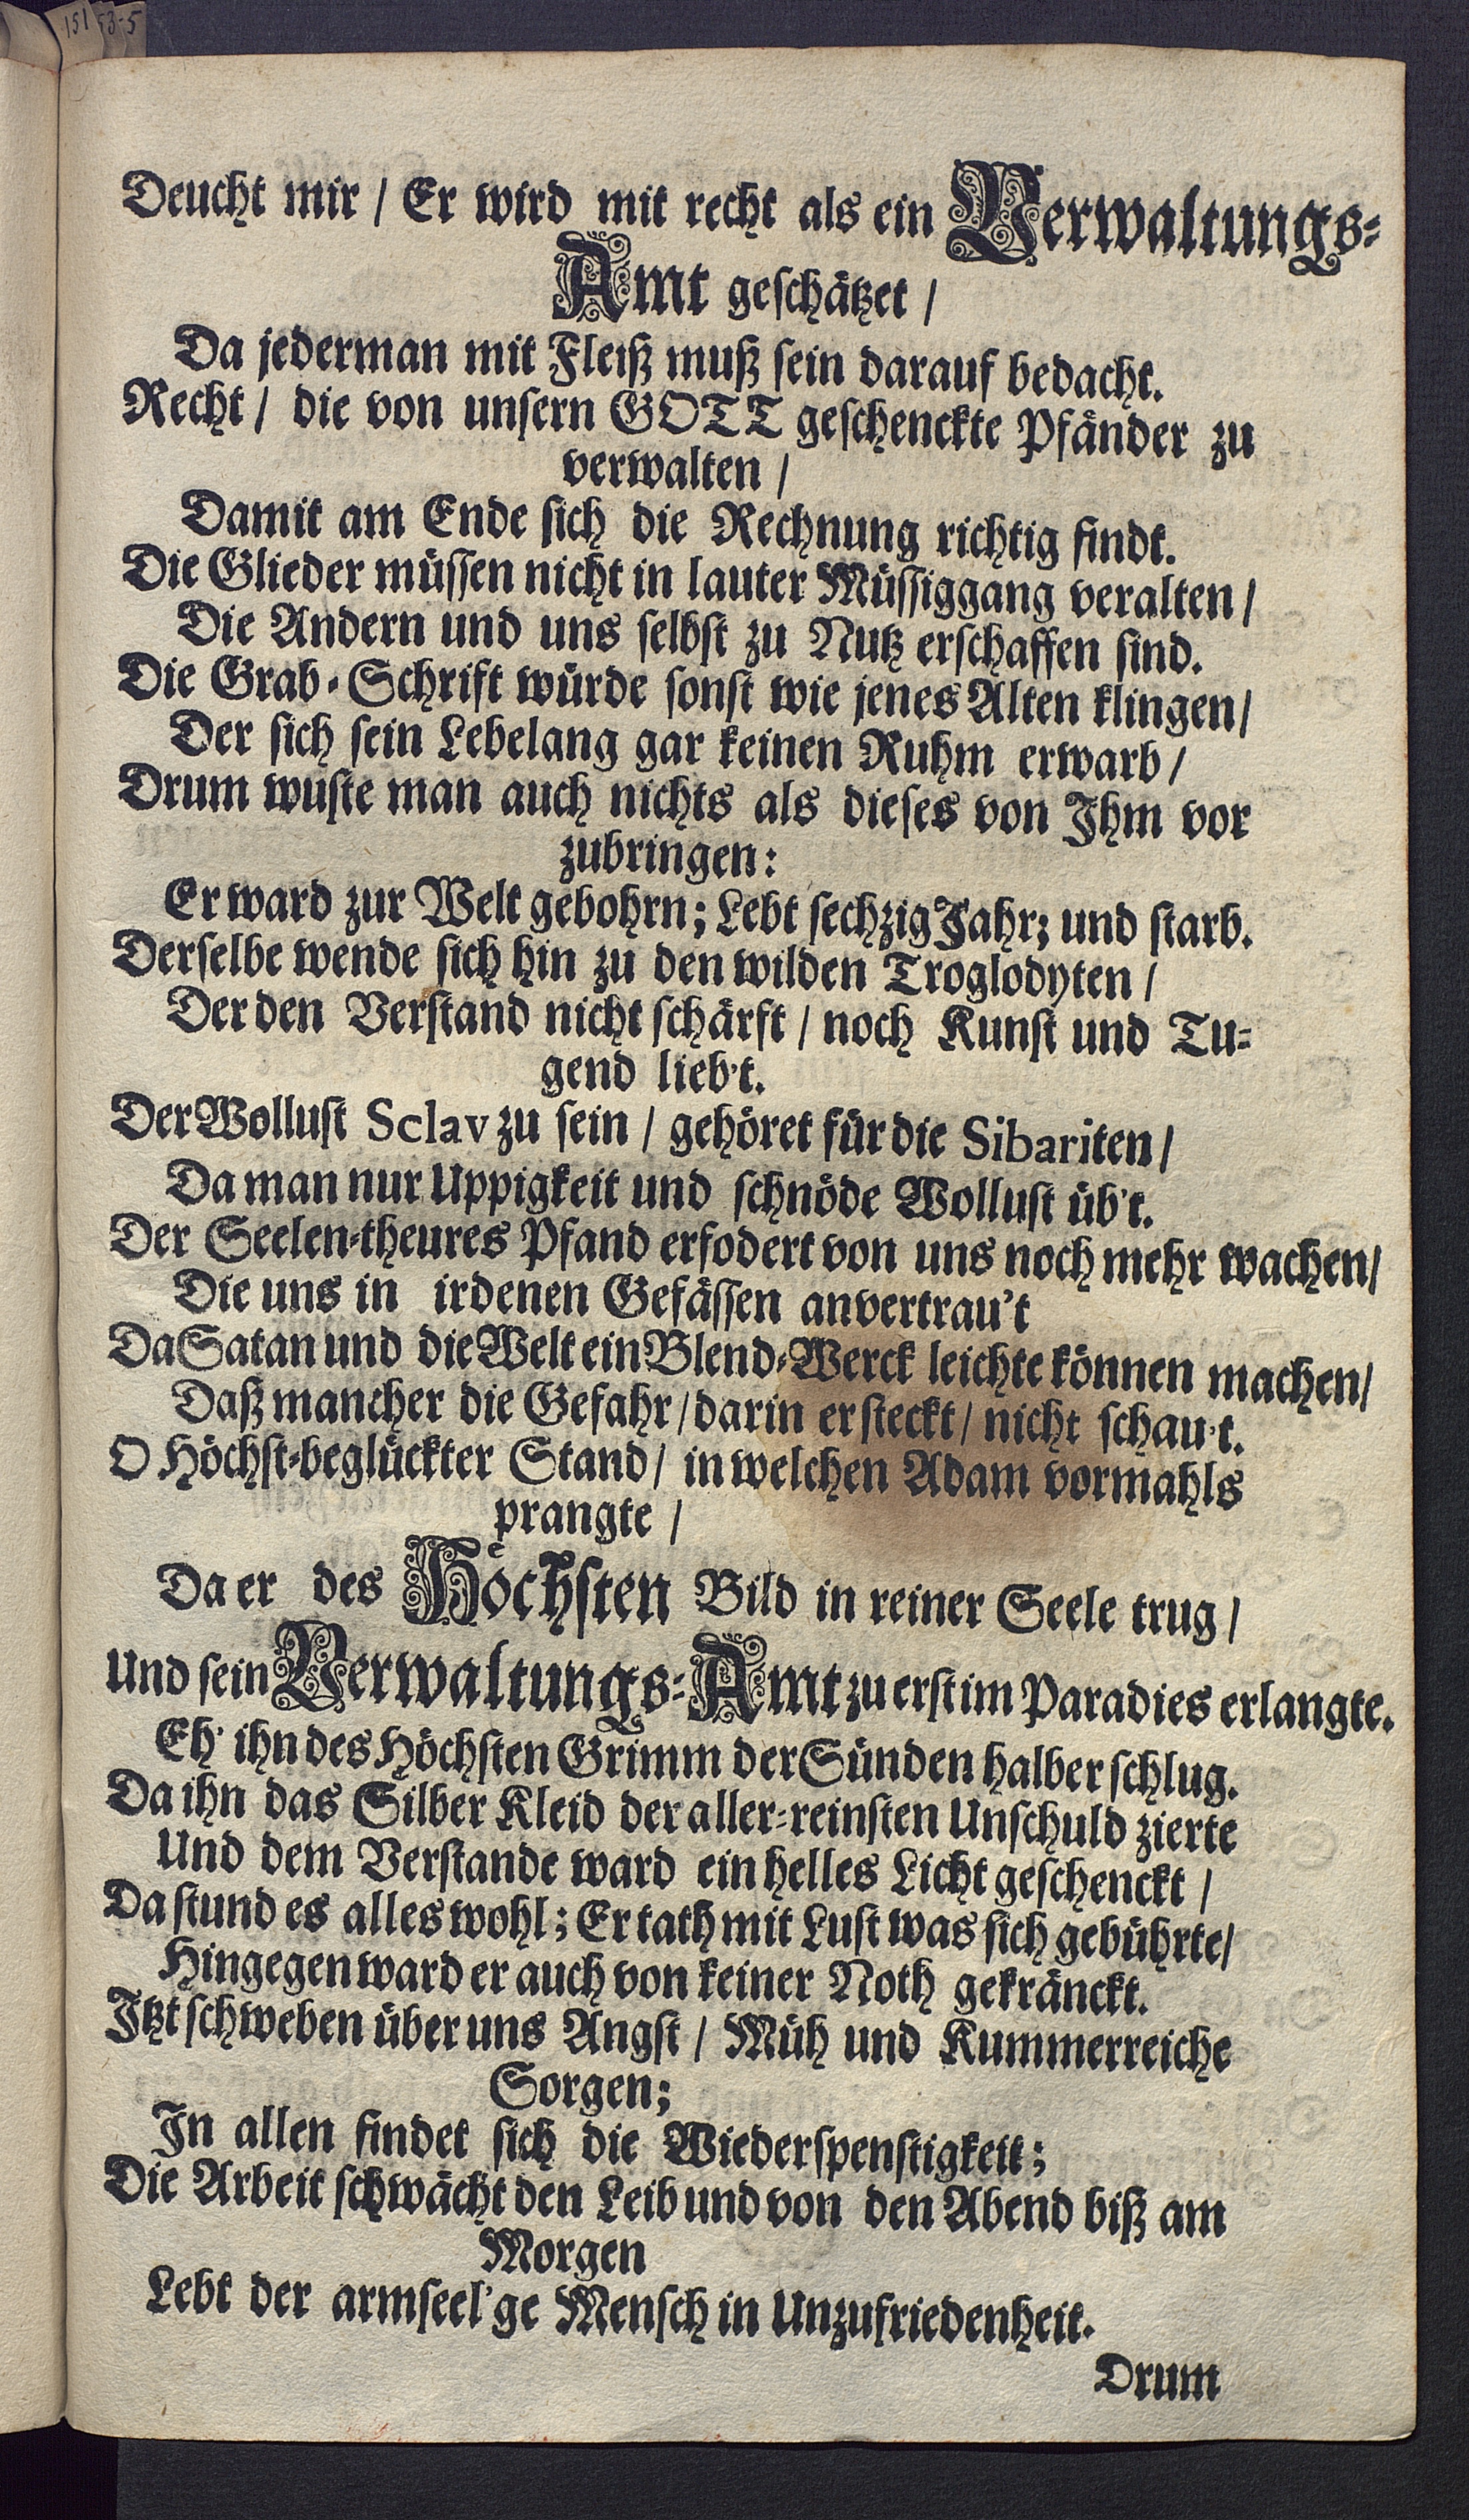 151 53-5
Deucht mir / Er wird mit recht als ein Verwaltungs-
Amt geschätzet /
Da jederman mit Fleiß muß sein darauf bedacht.
Recht / die von unsern GOTT geschenckte Pfänder zu
verwalten /
Damit am Ende sich die Rechnung richtig findt.
Die Glieder müssen nicht in lauter Müssiggang veralten /
Die Andern und uns selbst zu Nutz erschaffen sind.
Die Grab-Schrift würde sonst wie jenes Alten klingen /
Der sich sein Lebelang gar keinen Ruhm erwarb /
Drum wuste man auch nichts als dieses von Ihm vor
zubringen:
Er ward zur Welt gebohrn; Lebt sechzig Jahr; und starb.
Derselbe wende sich hin zu den wilden Troglodyten /
Der den Verstand nicht schärft / noch Kunst und Tu-
gend lieb't.
Der Wollust Sclav zu sein / gehöret für die Sibariten /
Da man nur Uppigkeit und schnöde Wollust üb't.
Der Seelen-theures Pfand erfodert von uns noch mehr wachen /
Die uns in irdenen Gefässen anvertrau't
Da Satan und die Welt ein Blend-Werck leichte können machen /
Daß mancher die Gefahr / darin er steckt / nicht schau't.
O Höchst-beglückter Stand / in welchen Adam vormahls
prangte /
Da er des Höchsten Bild in reiner Seele trug /
Und sein Verwaltungs-Amt zu erst im Paradies erlangte.
Eh' ihn des Höchsten Grimm der Sünden halber schlug.
Da ihn das Silber Kleid der aller-reinsten Unschuld zierte
Und dem Verstande ward ein helles Licht geschenckt /
Da stund es alles wohl; Er tath mit Lust was sich gebührte /
Hingegen ward er auch von keiner Noth gekränckt.
Itzt schweben über uns Angst / Müh und Kummerreiche
Sorgen;
In allen findet sich die Wiederspenstigkeit;
Die Arbeit schwächt den Leib und von den Abend biß am
Morgen
Lebt der armseel'ge Mensch in Unzufriedenheit.
Drum